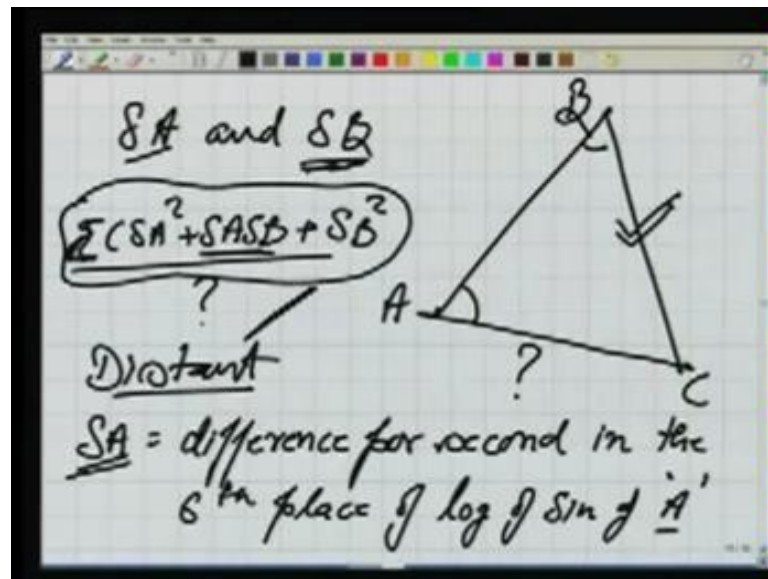 δA and δB
B
Σ(δA² + δAδB + δB²
?
A
Distant
?
C
δA = difference per second in the
6th place of log of sin of 'A'